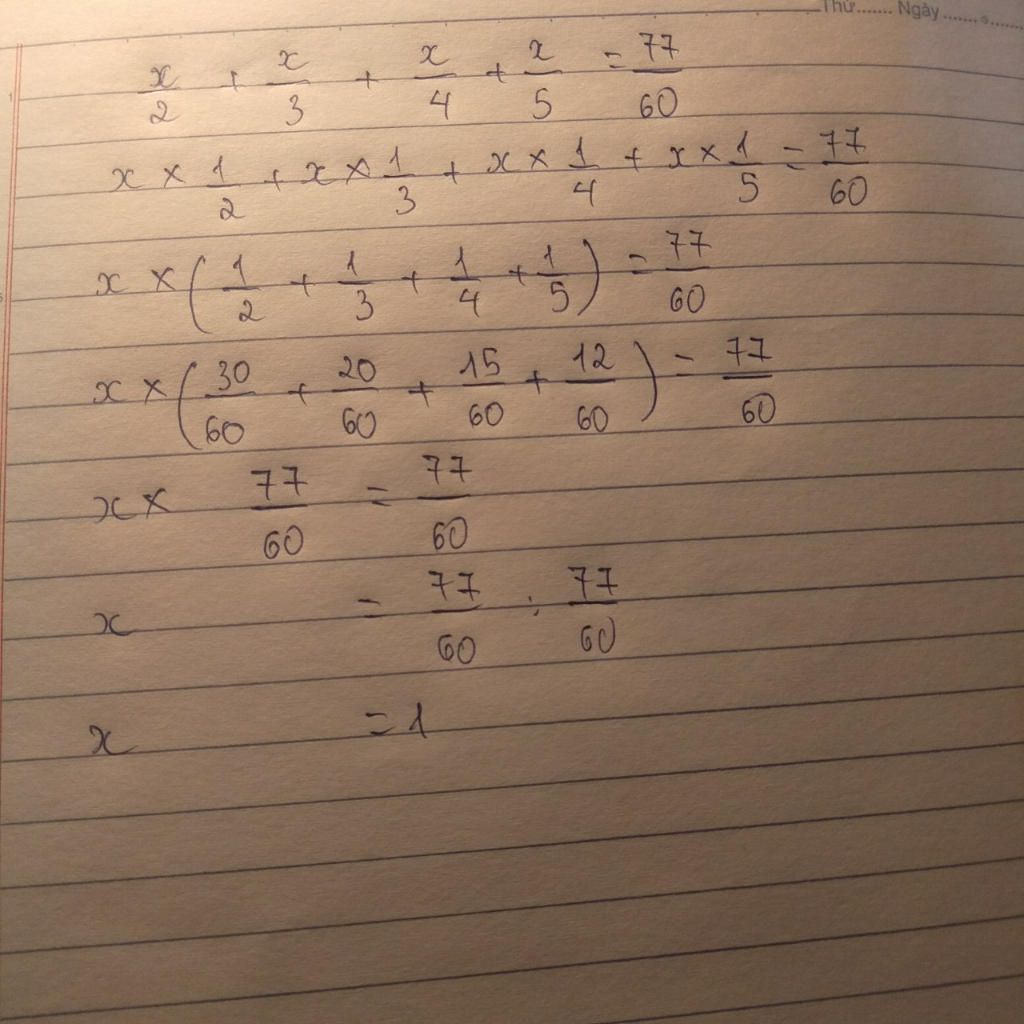 Thứ....... Ngày ....... 
x/2 + x/3 + x/4 + x/5 = 77/60
x × 1/2 + x × 1/3 + x × 1/4 + x × 1/5 = 77/60
x × (1/2 + 1/3 + 1/4 + 1/5) = 77/60
x × (30/60 + 20/60 + 15/60 + 12/60) = 77/60
x × 77/60 = 77/60
x = 77/60 : 77/60
x = 1